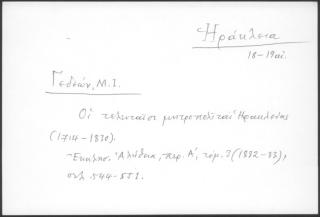 Ἡράκλεια
18-19 αἰ.
Γεδεών, Μ. Ι.
Οἱ τελευταῖοι μητροπολῖται Ἡρακλείας
(1714-1830).
Ἐκκλησ. Ἀλήθεια, περ. Α΄, τόμ. 3 (1882-83),
σελ. 544-551.